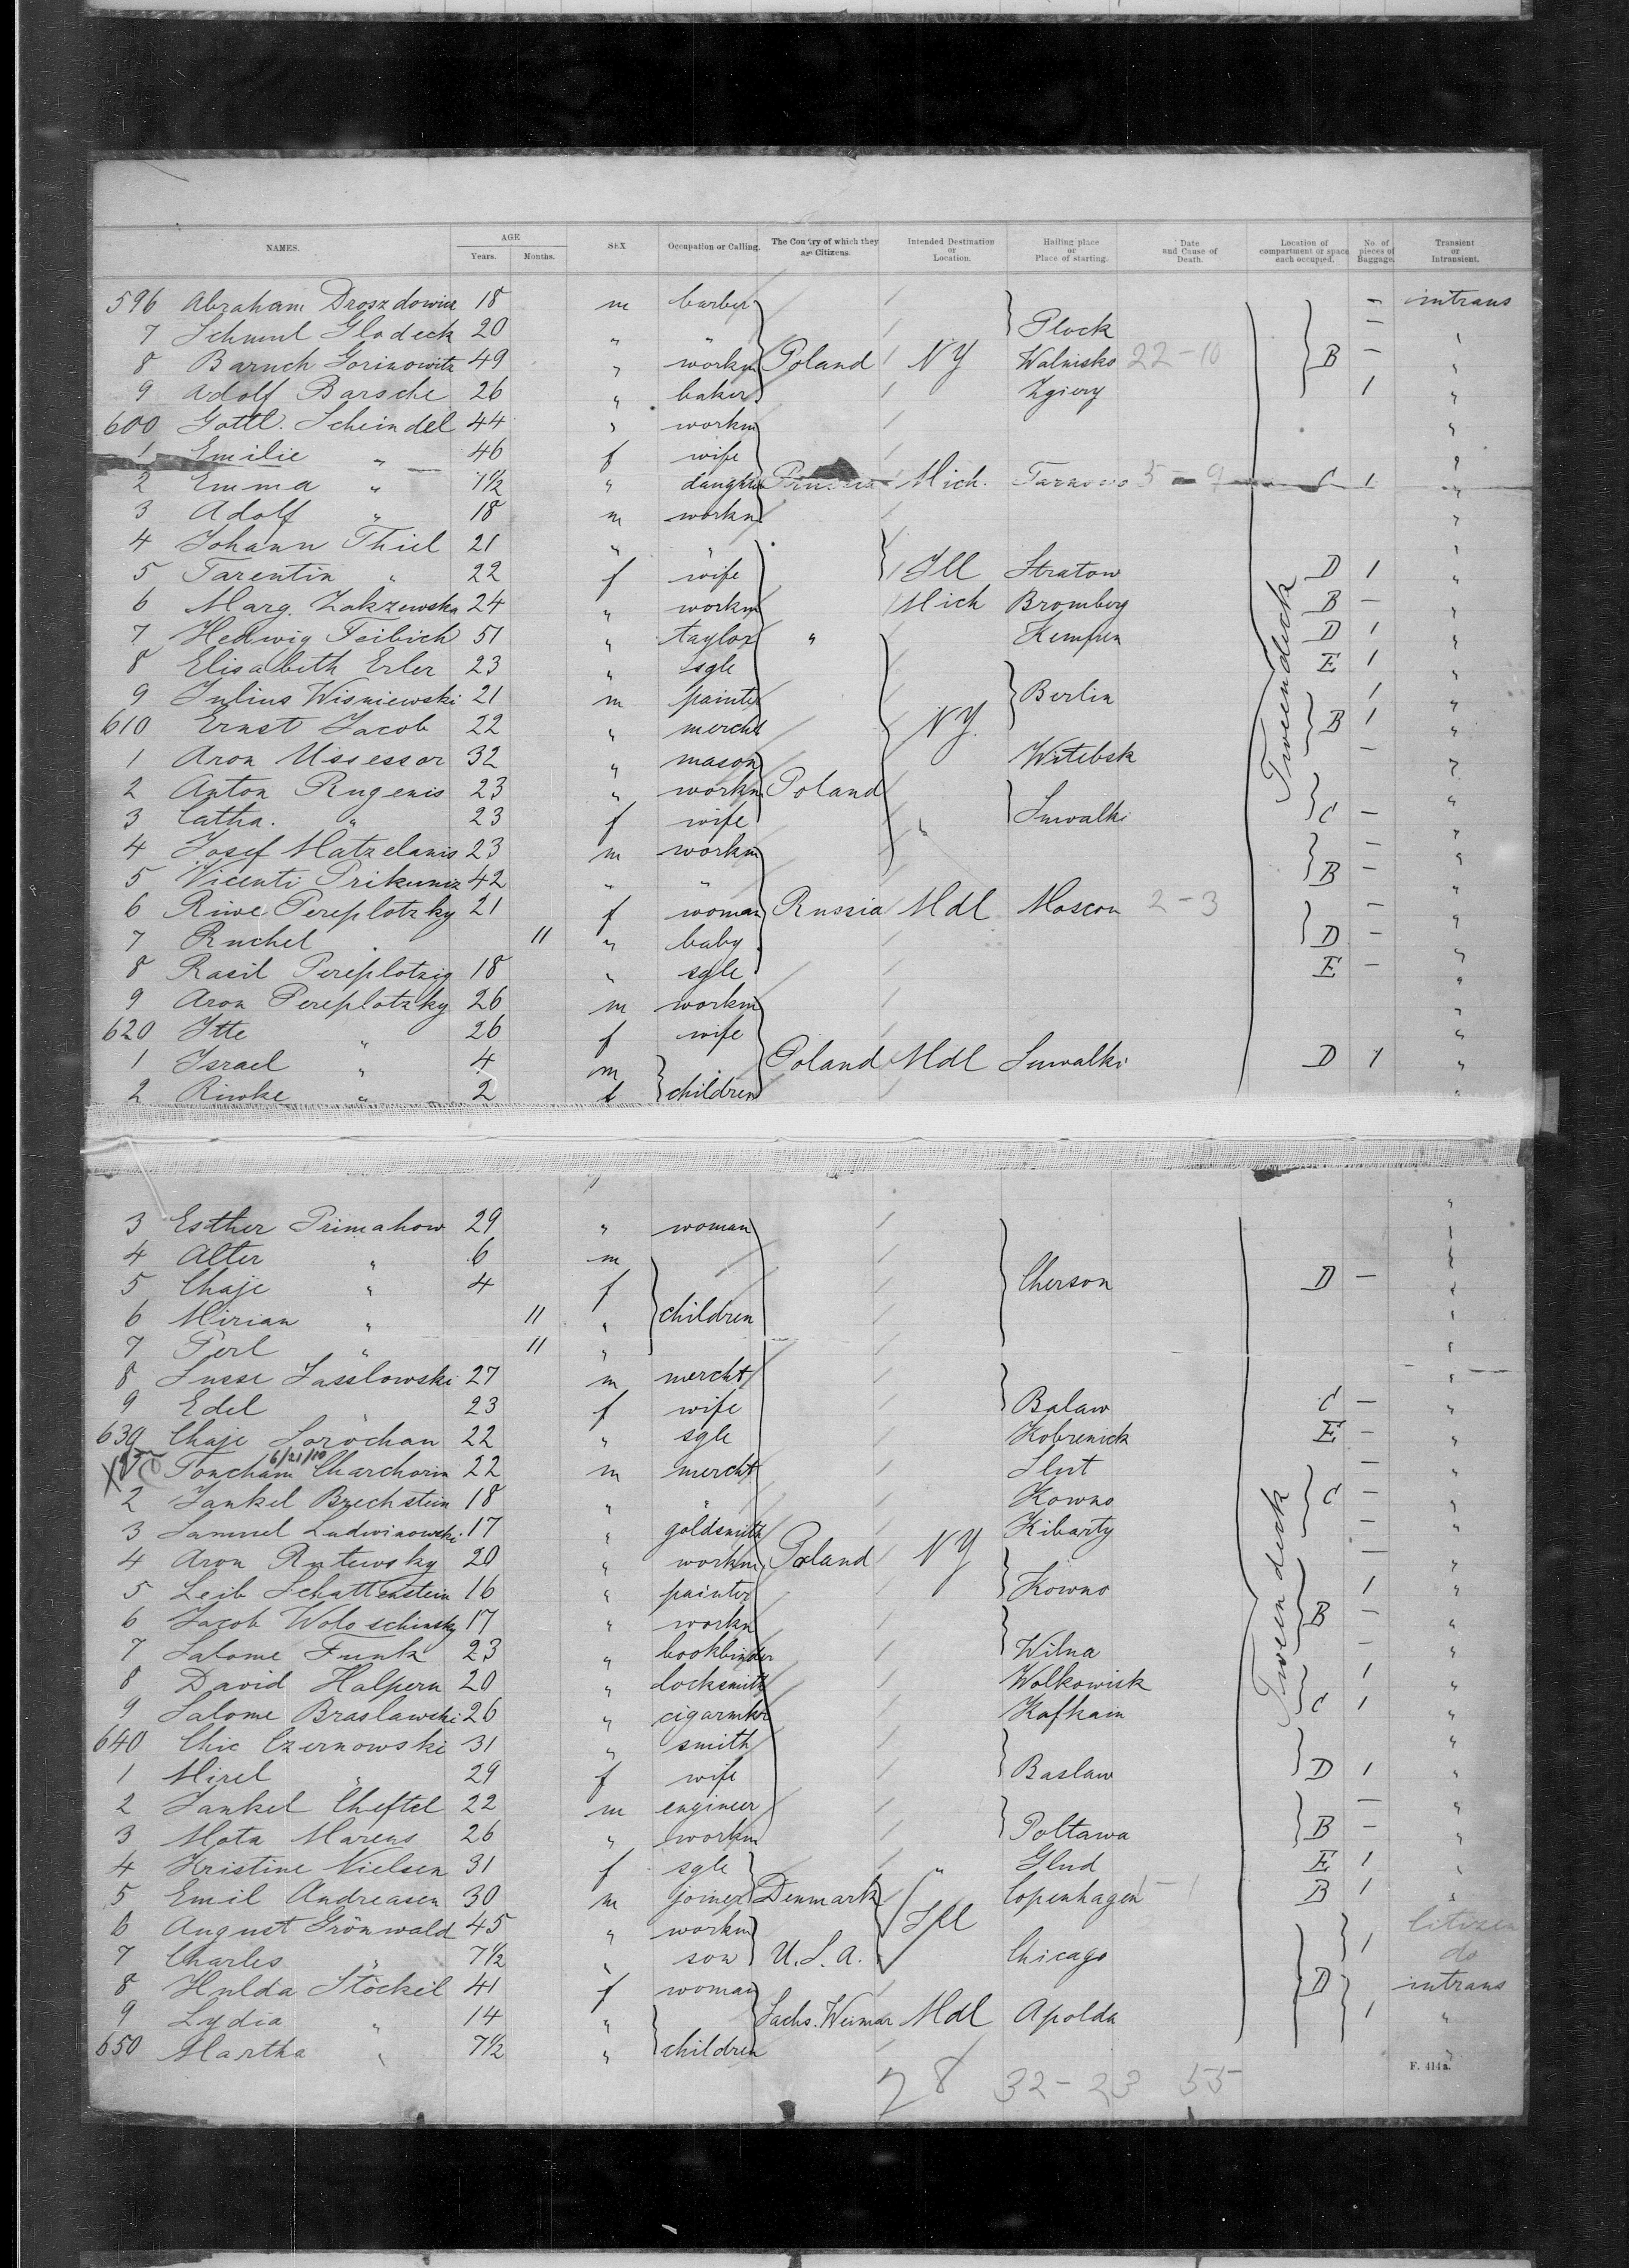 NAMES. AGE Years. Months. SEX Occupation or Calling. The Country of which they are Citizens. Intended Destination or Location. Hailing place or Place of starting. Date and Cause of Death. Location of compartment or space each occupied. No. of pieces of Baggage. Transient or Intransient.
596 Abraham 18 m barber — intrans
7 Schmul Gladeck 20 " " Plock — "
8 Baruch Gorinowitz 49 " workm Poland NY Walnisko 22-10 B — "
9 Adolf Barsche 26 " baker Zgierz 1 "
600 Gottl. Scheindel 44 " workm "
1 Emilie " 46 f wife "
2 Emma " 7½ " daughter Mich. 5-9 C 1 "
3 Adolf " 18 m workm "
4 Johann Thiel 21 " " "
5 Tarentin " 22 f wife Ill Stratow D 1 "
6 Marg. Zakzewska 24 " workm Mich Bromberg B — "
7 Hedwig Feibich 51 " taylor " Kempen D 1 "
8 Elisabeth Erler 23 " sgle E 1 "
9 Julius Wisniewski 21 m painter Berlin 1 "
610 Ernst Jacob 22 " mercht NY. B 1 "
1 Aron Ussessor 32 " mason Witebsk — "
2 Anton Rugenis 23 " workm Poland "
3 Catha. " 23 f wife " Suwalki C — "
4 Josef Matzelanis 23 m workm — "
5 Vicenti 42 " " B — "
6 Riwe Pereplotzky 21 f woman Russia Mdl Moscou 2-3 — "
7 Ruchel " 11 " baby D — "
8 Rasil Pereplotzig 18 " sgle E — "
9 Aron Pereplotzky 26 m workm "
620 Itte " 26 f wife "
1 Israel " 4 m Poland Mdl Suwalki D 1 "
2 Riwke " 2 f children "
3 Esther Primahow 29 " woman "
4 Alter " 6 m "
5 Chaje " 4 f Cherson D — "
6 Mirian " 11 " children "
7 Perl " 11 " "
8 Susse Jasslowski 27 m mercht "
9 Edel " 23 f wife Balaw C — "
630 Chaje Sorochan 22 " sgle Kobrenick E — "
6/21/10
Toncham Charchorin 22 m mercht Slut — "
2 Jankel Brechstein 18 " " Kowno C — "
3 Samuel Ludwinowski 17 " goldsmith Kibarty — "
4 Aron Rutewsky 20 " workm Poland NY — "
5 Leib Schattenstein 16 " painter Kowno 1 "
6 Jacob Woloschinsky 17 " workm B — "
7 Salome Funk 23 " bookbinder Wilna — "
8 David Halpern 20 " locksmith Wolkowisk 1 "
9 Salome Braslawski 26 " cigarmkr Kafkain C 1 "
640 Chie Czernowski 31 " smith "
1 Mirel " 29 f wife Baslaw D 1 "
2 Jankel Cheftel 22 m engineer — "
3 Mota Marcus 26 " workm Poltawa B — "
4 Kristine Nielsen 31 f sgle " Glud E 1 "
5 Emil Andreasen 30 m joiner Denmark Copenhagen 1-1 B 1 "
6 August Grönwald 45 " workm Ill Citizen
7 Charles " 7½ " son U.S.A. Chicago 1 do
8 Hulda Stöckel 41 f woman D intrans
9 Lydia " 14 " Sachs. Weimar Mdl Apolda 1 "
650 Martha " 7½ " children "
Tween deck
Tween deck
28 32-23 55
F. 414a.